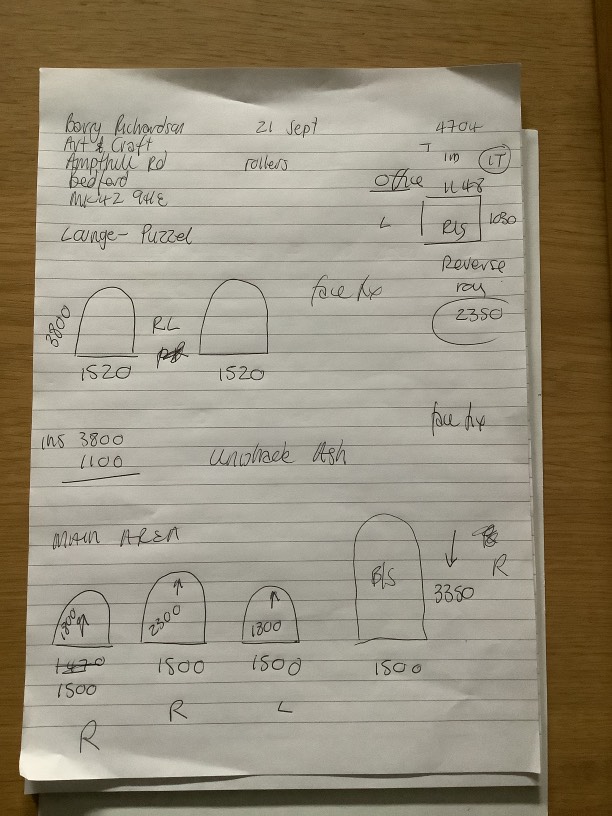 Barry Richardson 21 Sept 4704
Art & Craft T 1m 1T
Ampthill Rd rollers
Bedford Office 1148
MK42 9HE
L R/S 1080
Lounge - Puzzel
Reverse
roll
face fix 2350
3800 RL
1520 1520
face fix
ins 3800
1100 Ash
MAIN AREA
B/S R
3350
1800 2300 1800
1470 1500 1500 1500
1500
R R L